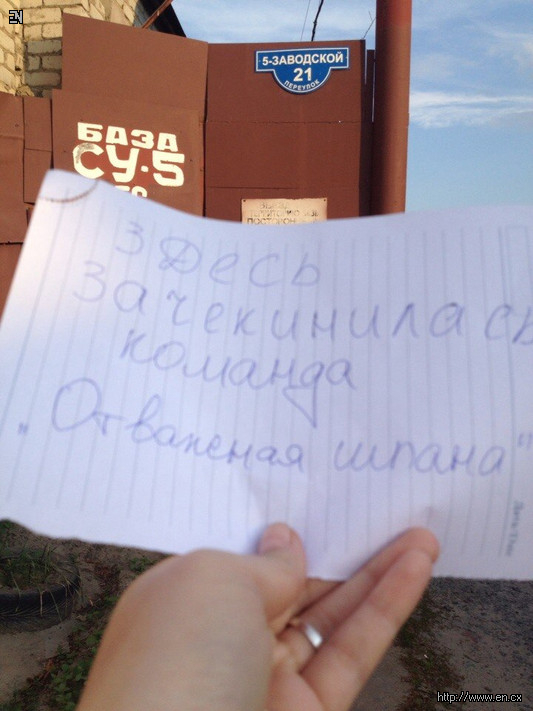 EN
5-ЗАВОДСКОЙ
21
ПЕРЕУЛОК
БАЗА
СУ-5
Здесь
Зачекинилась
команда
„Отважная шпана"
http://www.en.cx